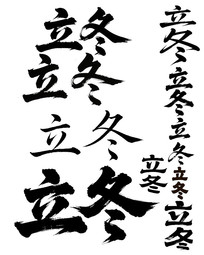 立冬
立冬
立冬
立冬
立冬
立冬
立冬
立冬
立冬
立冬